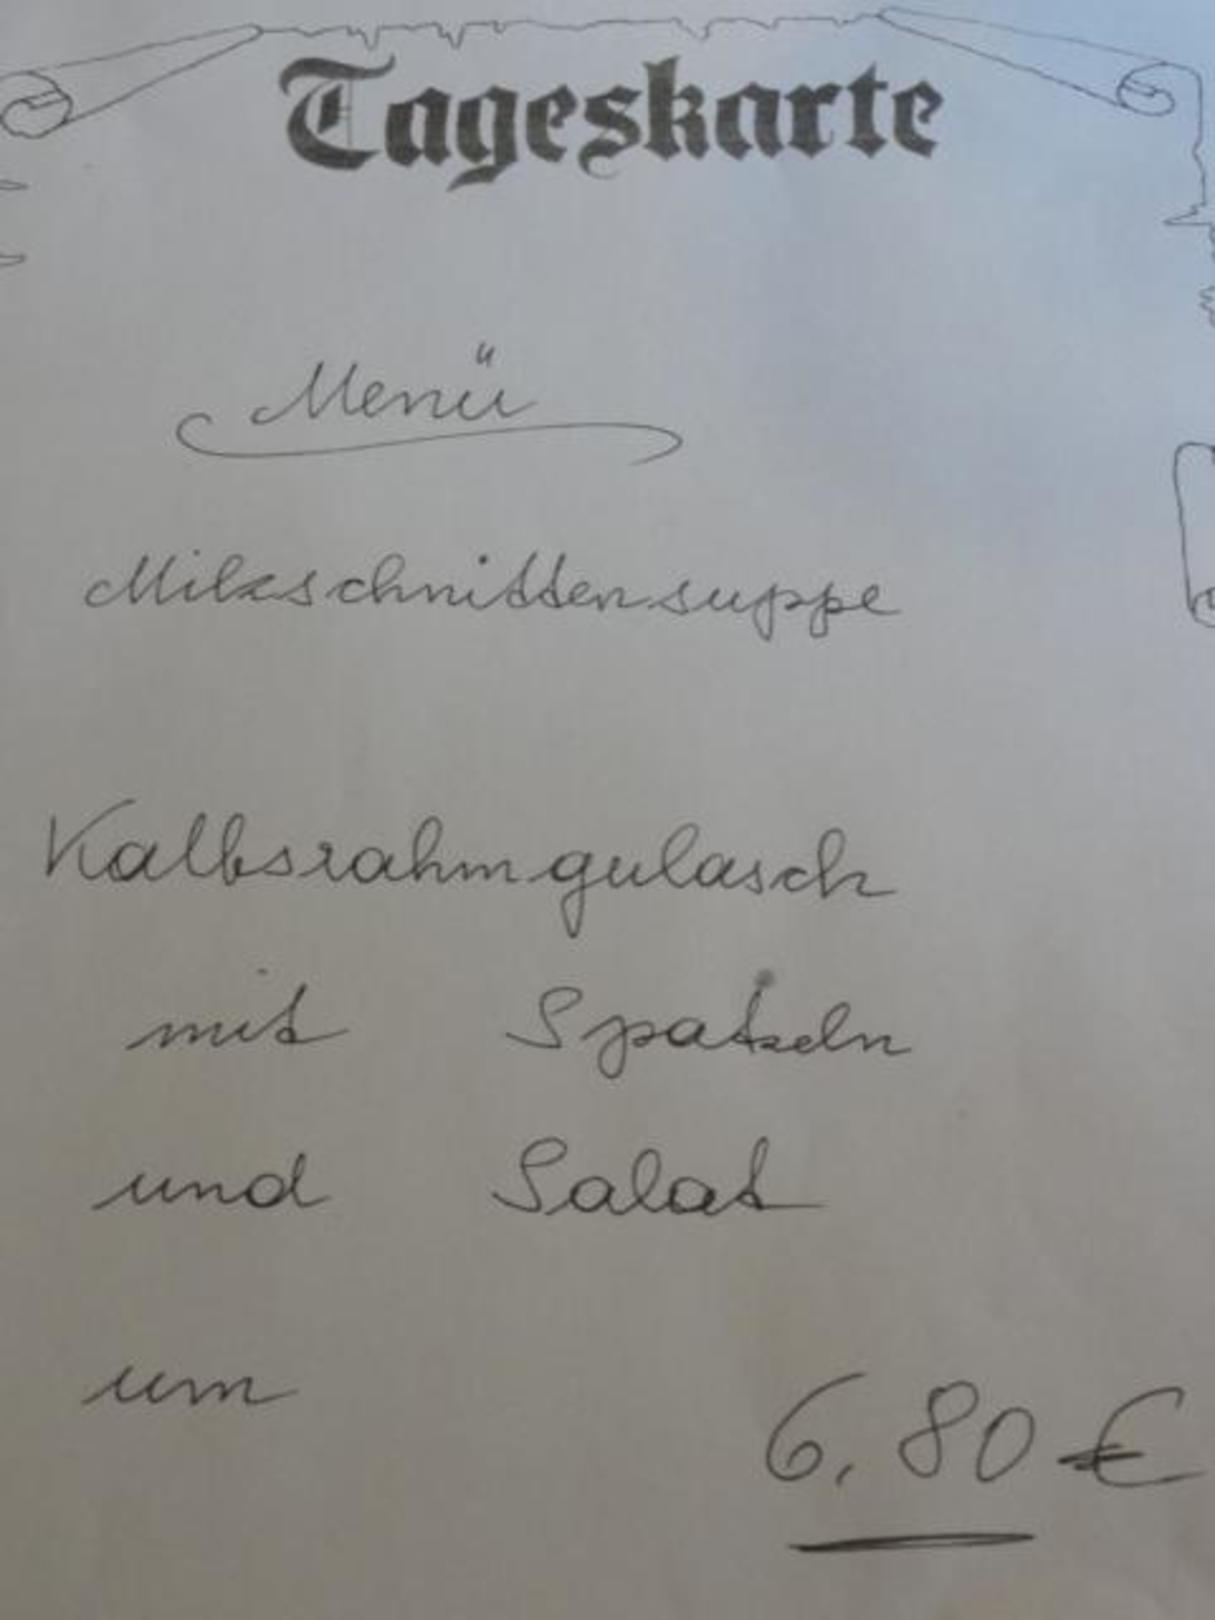 Tageskarte
Menü
Milzschnittensuppe
Kalbsrahmgulasch
mit Spatzeln
und Salat
um 6,80 €